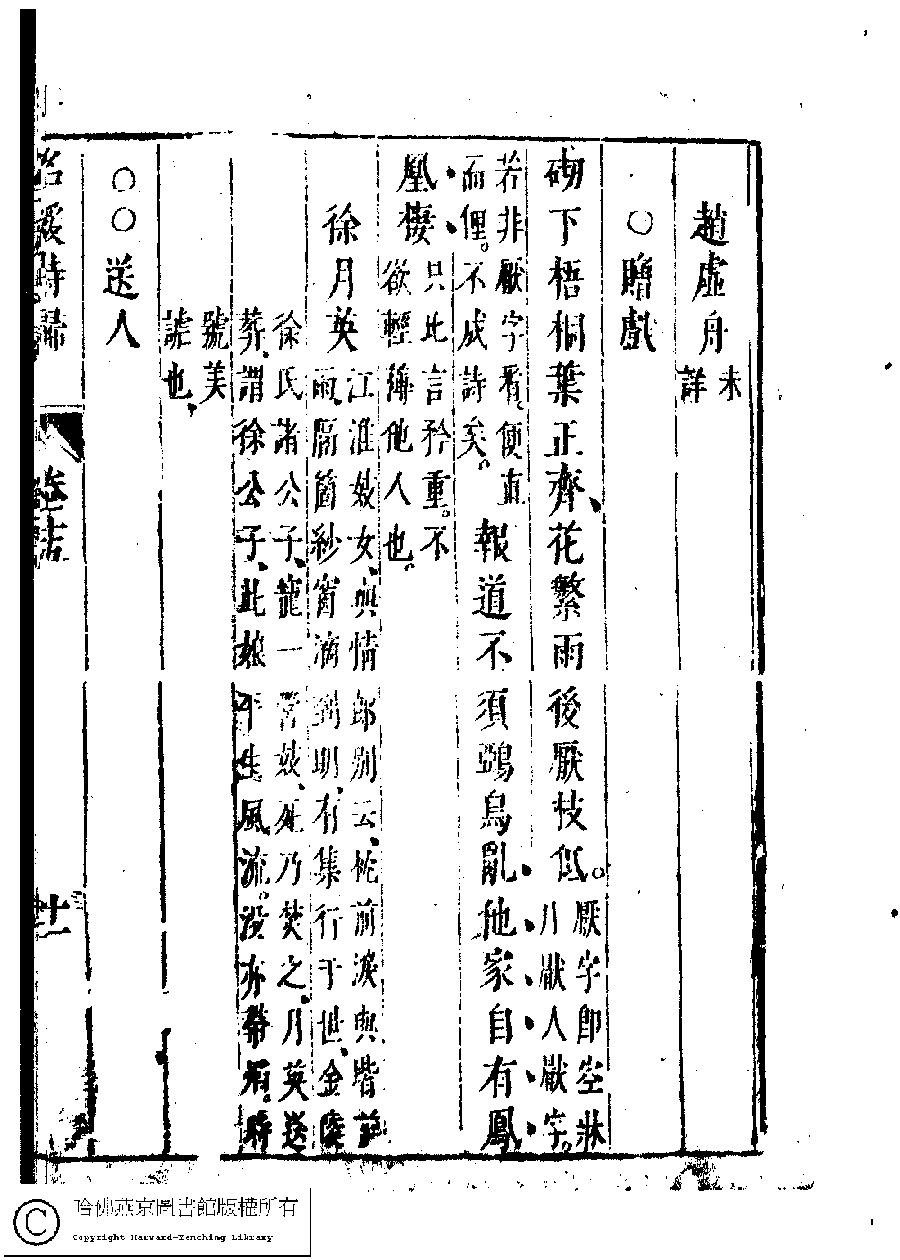 趙虛舟 未
詳
○贈戲
砌下梧桐葉正齊、花繁雨後厭枝低。
厭字即空牀
月厭人厭字。
若非厭字看便直
而俚。不成詩矣。
報道不須鵶鳥亂他家自有鳳
凰棲
只此言矜重。不
欲輕薄他人也。
徐月英
江淮妓女、與情郎別云、枕前淚與堦前
雨、隔箇紗窗滴到明、有集行于世、金陵
徐氏諸公子、寵一營妓、死乃焚之、月英送
葬、謂徐公子、此娘平生風流。沒亦帶焰。時
號美
謔也、
○○送人
名媛詩歸
廿一
哈佛燕京圖書館版權所有
Copyright Harvard-Yenching Library